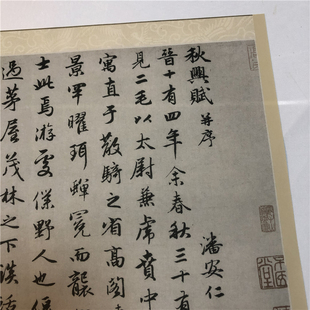 秋興賦 并序 潘安仁
晉十有四年余春秋三十有
見二毛以太尉兼虎賁中
寓直于散騎之省高閣
景罕曜珥蟬冕而襲
士此焉游處僕野人也偃
過茅屋茂林之下談話